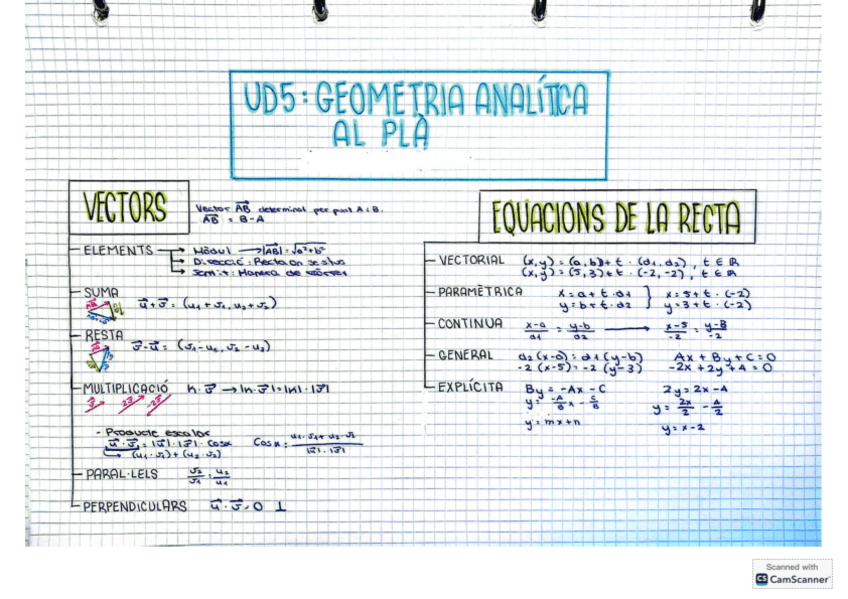 UD5: GEOMETRIA ANALÍTICA
AL PLÀ
VECTORS
Vector AB determinat per punt A i B.
AB = B - A
ELEMENTS → Mòdul → |AB| = √a²+b²
→ Direcció: Recta on se situa
→ Sentit: Manera de
SUMA
u + v = (u1 + v1, u2 + v2)
RESTA
v - u = (v1 - u1, v2 - u2)
MULTIPLICACIÓ k · v → |k · v| = |k| · |v|
v 2v -2v
- Producte escalar
u · v = |u| · |v| · cos α
(u1 · v1) + (u2 · v2)
Cos α = u1 · v1 + u2 · v2 / |u| · |v|
PARAL·LELS v2/v1 = u2/u1
PERPENDICULARS u · v = 0 ⊥
EQUACIONS DE LA RECTA
VECTORIAL (x,y) = (a,b) + t · (d1, d2), t ∈ R
(x,y) = (5,3) + t · (-2,-2), t ∈ R
PARAMÈTRICA x = a + t · d1 } x = 5 + t · (-2)
y = b + t · d2 y = 3 + t · (-2)
CONTINUA x-a/d1 = y-b/d2 → x-5/-2 = y-3/-2
GENERAL d2 (x-a) = d1 (y-b) Ax + By + C = 0
-2 (x-5) = -2 (y-3) -2x + 2y + 4 = 0
EXPLÍCITA By = -Ax - C 2y = 2x - 4
y = -A/B x - C/B y = 2x/2 - 4/2
y = mx + n y = x - 2
Scanned with
CS CamScanner